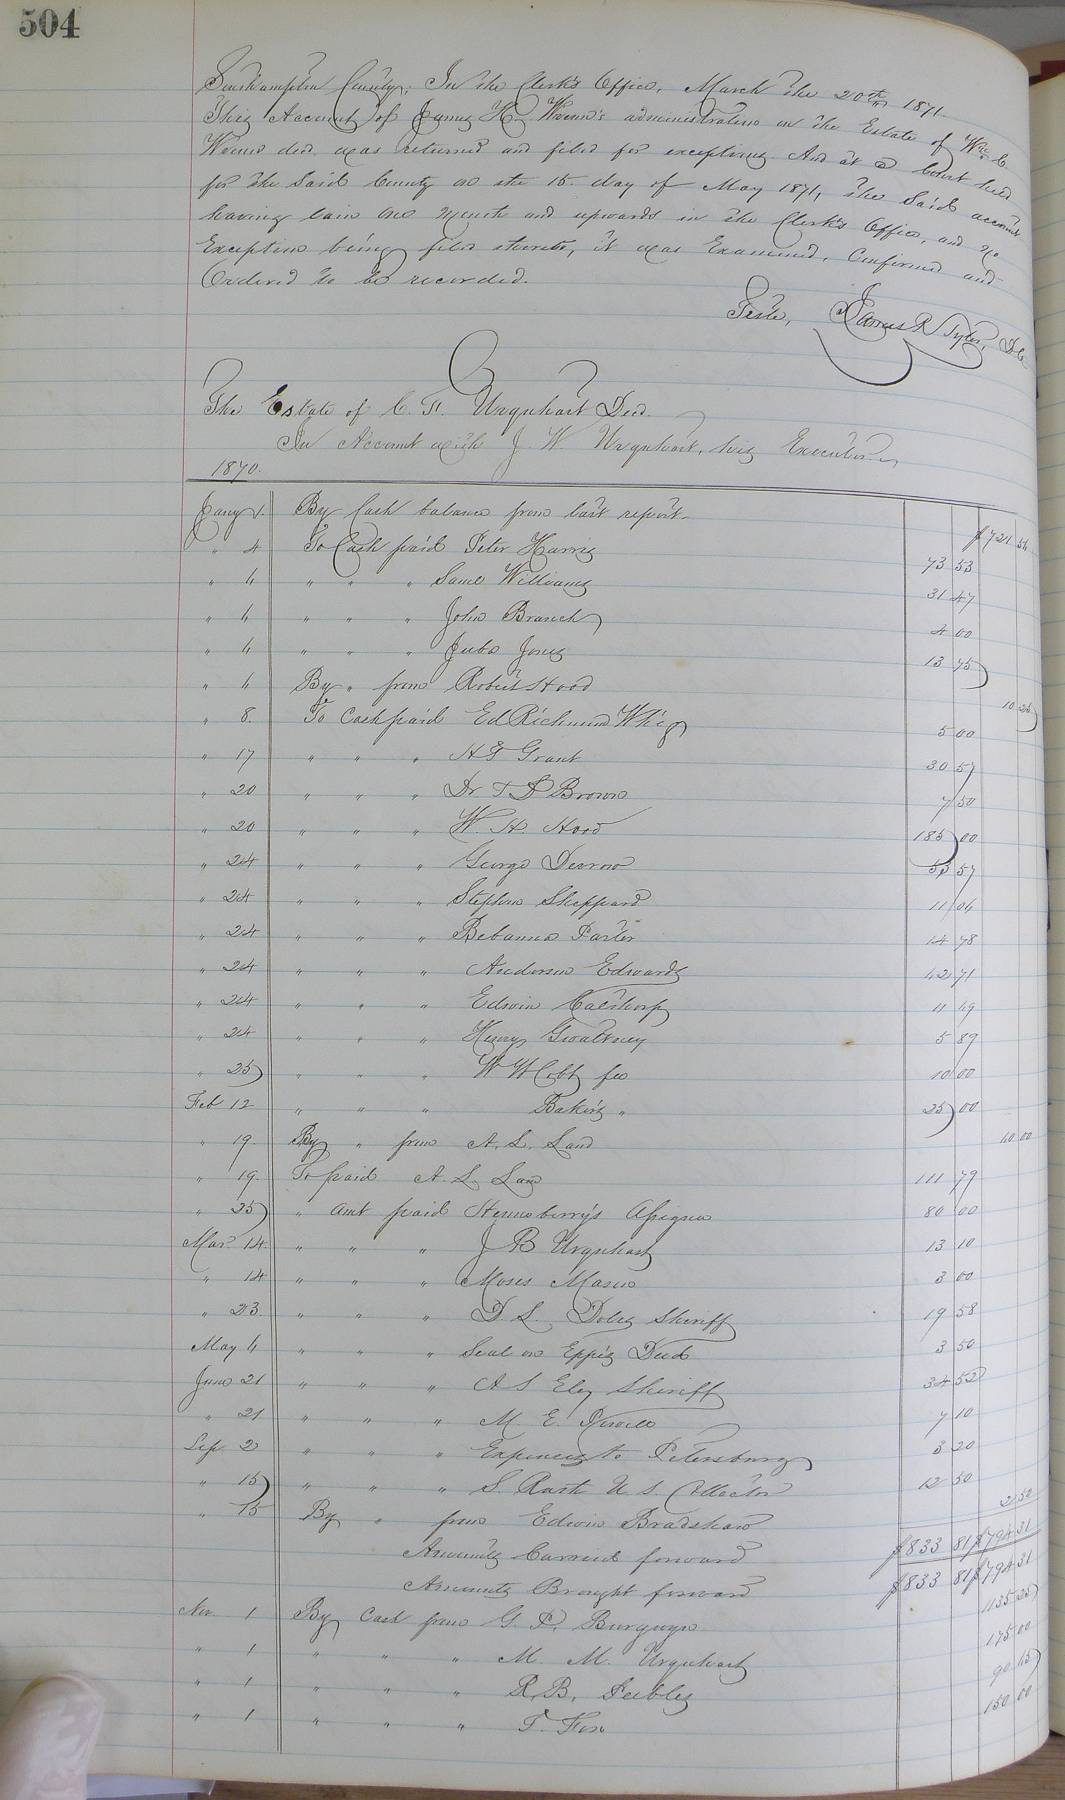 504
Southampton County; In the Clerk's Office, March the 20th 1871.
This Account of James H. administration on the Estate of Wm. C.
decd. was returned and filed for exceptions. And at a Court held
for the said County on the 15. day of May 1871, the said account
having lain one month and upwards in the Clerk's Office, and no
Exception being filed thereto, it was Examined, Confirmed and
Ordered to be recorded.
Teste, James R Tyler, D.C.
The Estate of C. F. Urquhart Decd.
In Account with J. W. Urquhart, his Executor
1870.
Jany 1 By Cash balance from last report $721 56
" 4 To Cash paid Peter Harris 73 53
" 4 " " " Saml Williams 31 47
" 4 " " " John Branch 4 00
" 4 " " " Juba Jones 13 75
" 4 By " from Robert Hood 10 25
" 8. To Cash paid Ed Richmond Whig 5 00
" 17 " " " Grant 30 57
" 20 " " " Dr Brown 7 50
" 20 " " " W. H. Hood 185 00
" 24 " " " George 53 57
" 24 " " " Stephen Sheppard 11 04
" 24 " " " 14 78
" 24 " " " Anderson Edwards 42 71
" 24 " " " Edwin Calthorp 11 49
" 24 " " " Henry Gwaltney 5 89
" 25 " " " W W Cobb fee 10 00
Feb 12 " " " Baker's " 25 00
" 19. By " from A. L. Land 40 00
" 19. To paid A. L. Land 111 79
" 25 " amt paid 80 00
Mar. 14 " " " J B Urquhart 13 10
" 14 " " " Moses Mason 3 00
" 23. " " " D. L. Doles Sheriff 19 58
May 4 " " " Seal on Epp's Deed 3 50
June 21 " " " Sheriff 34 52
" 21 " " " M. E. 7 10
Sep 2 " " " Expenses to Petersburg 3 20
" 15 " " " U S Collector 12 50
" 15 By " from Edwin Bradshaw 2 50
Amounts Carried forward $833 81 $794 31
Amounts Brought forward $833 81 $794 31
Nov. 1 By Cash from G. P. Burgwyn 1135 25
" 1 " " " M. M. Urquhart 175 00
" 1 " " " R. B. Peebles 90 45
" 1 " " " T. Fox 150 00